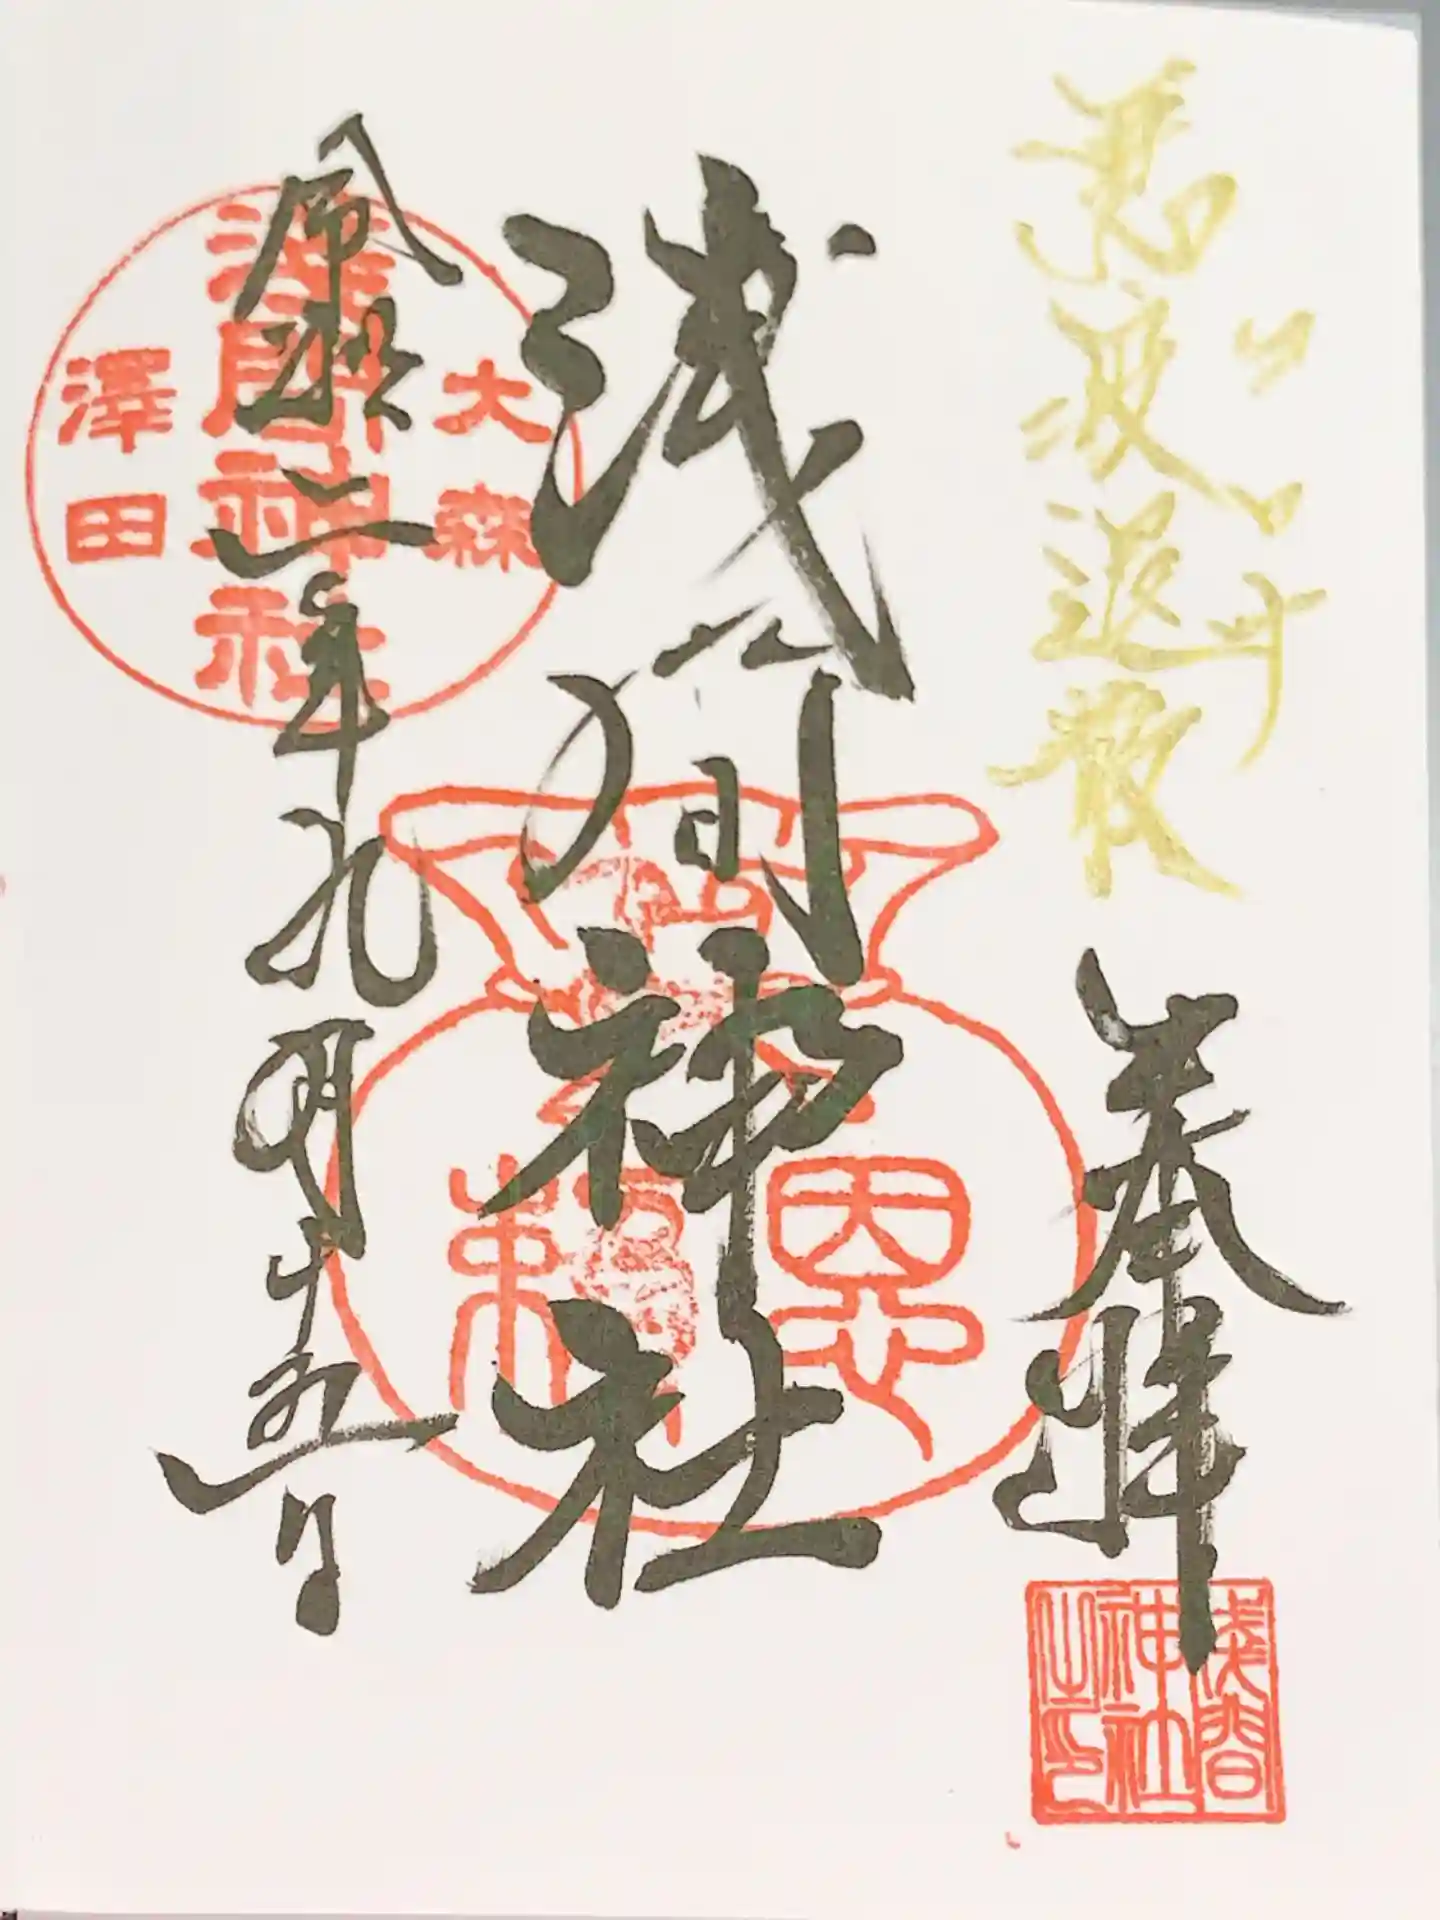 悪疫退散
奉拝
浅間神社
令和二年九月十五日
大森
淺間神社
澤田
恩頼
浅間
神社
之印